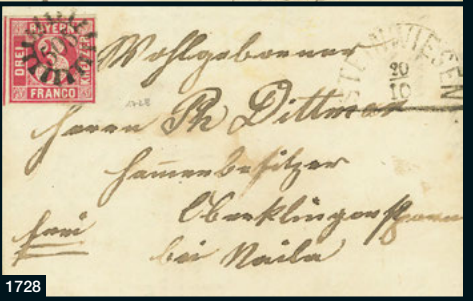 BAYERN
DREI
KREUZER
FRANCO
STEINWIESEN
20
10
1728
Wohlgeborner
Herrn Ph Dittmar
Hammerbesitzer
Oberklingensporn
frei
bei Naila
1728